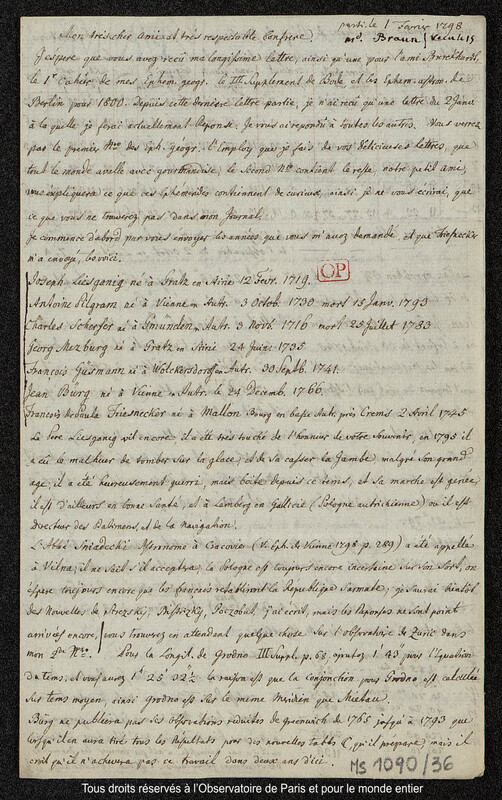 partie le 1 Fevrier 1798
Mon très cher ami et très respectable Confrère.
Mr. Braun
J'espere que vous avez reçu ma longissime lettre, ainsi qu'une pour l'ami Burckhardt,
le 1er Cahier de mes Ephem. geogr. le III Suplement de Bode, et les Ephem. astron. de
Berlin pour 1800. Depuis cette derniere lettre partie, je n'ai reçu qu'une lettre du 2 Janv
à la quelle je ferai actuellement Reponse. Je vous ai repondu à toutes les autres. Vous verrez
par le premier Nro. des Eph. geogr. l'Emploi que je fais de vos delicieuses lettres, que
tout le monde avalle avec gourmandise, le second Nro contient le reste, notre petit ami,
vous expliquera ce que ces Ephemerides contiennent de curieux, ainsi je ne vous ecrirai, que
ce que vous ne trouverez pas dans mon Journal.
Je commence d'abord par vous envoyer les années que vous m'avez demandé, et que Triesnecker
m'a envoyé, les voici.
OP
Joseph Liesganig né à Gratz en Stirie 12 Fevr. 1719.
Antoine Pilgram né à Vienne en Autr. 3 Octob. 1730 mort 15 Janv. 1793
Charles Scherfer né à Gmünden en Autr. 3 Novb. 1716 mort 25 Juillet 1783
Georg Mezburg né à Gratz en Stirie 24 Juin 1735
François Gusmann né à Wolckersdorf en Autr. 30 Septb. 1741.
Jean Bürg né à Vienne en Autr. le 24 Decemb. 1766
François de Paule Triesnecker né à Mallon Bourg en basse Autr. près Crems 2 Avril 1745
Le Pere Liesganig vit encore il a été très touché de l'honneur de votre Souvenir, en 1795 il
a eû le malheur de tomber sur la glace, et de se casser la Jambe, malgré son grand
age, il a été heureusement guerri, mais boite depuis ce tems, et sa marche est genée,
il est d'ailleurs en bonne Santé, et à Lemberg en Gallicie (Pologne autrichienne) où il est
Directeur des Batimens, et de la Navigation.
L'Abbé Sniadecki Astronome à Cracovie (V. Eph. de Vienne 1798 p. 289) a été appellé
à Vilna, il ne sait s'il acceptera, la Pologne est toujours encore incertaine sur son Sort, on
espere toujours encore que les françois retabliront la Republique Sarmate, je saurai bientôt
des Nouvelles de Strezky, Bistrzky, Poczobut, j'ai ecrit, mais les Reponses ne sont point
arrivés encore, vous trouverez en attendant quelque chose sur l'observatoire de Zuric dans
mon 2d Nro. Pour la Longit. de Grodno III Suppl. p. 68, ajoutez 1' 43" pour l'Equation
du tems, et vous aurez 1h 25' 32"½ la raison est que la conjonction pour Grodno est calculée
sur tems moyen, ainsi Grodno est sur le même Meridien que Mietau.
Bürg ne publiera pas ses observations reduites de Greenwich de 1765 jusqu'à 1793 que
lorsqu'il en aura tiré tous les Resultats pour des nouvelles tables (qu'il prepare) mais il
croit qu'il n'achevera pas ce travail dans deux ans d'ici.
MS 1090/36
Tous droits réservés à l'Observatoire de Paris et pour le monde entier